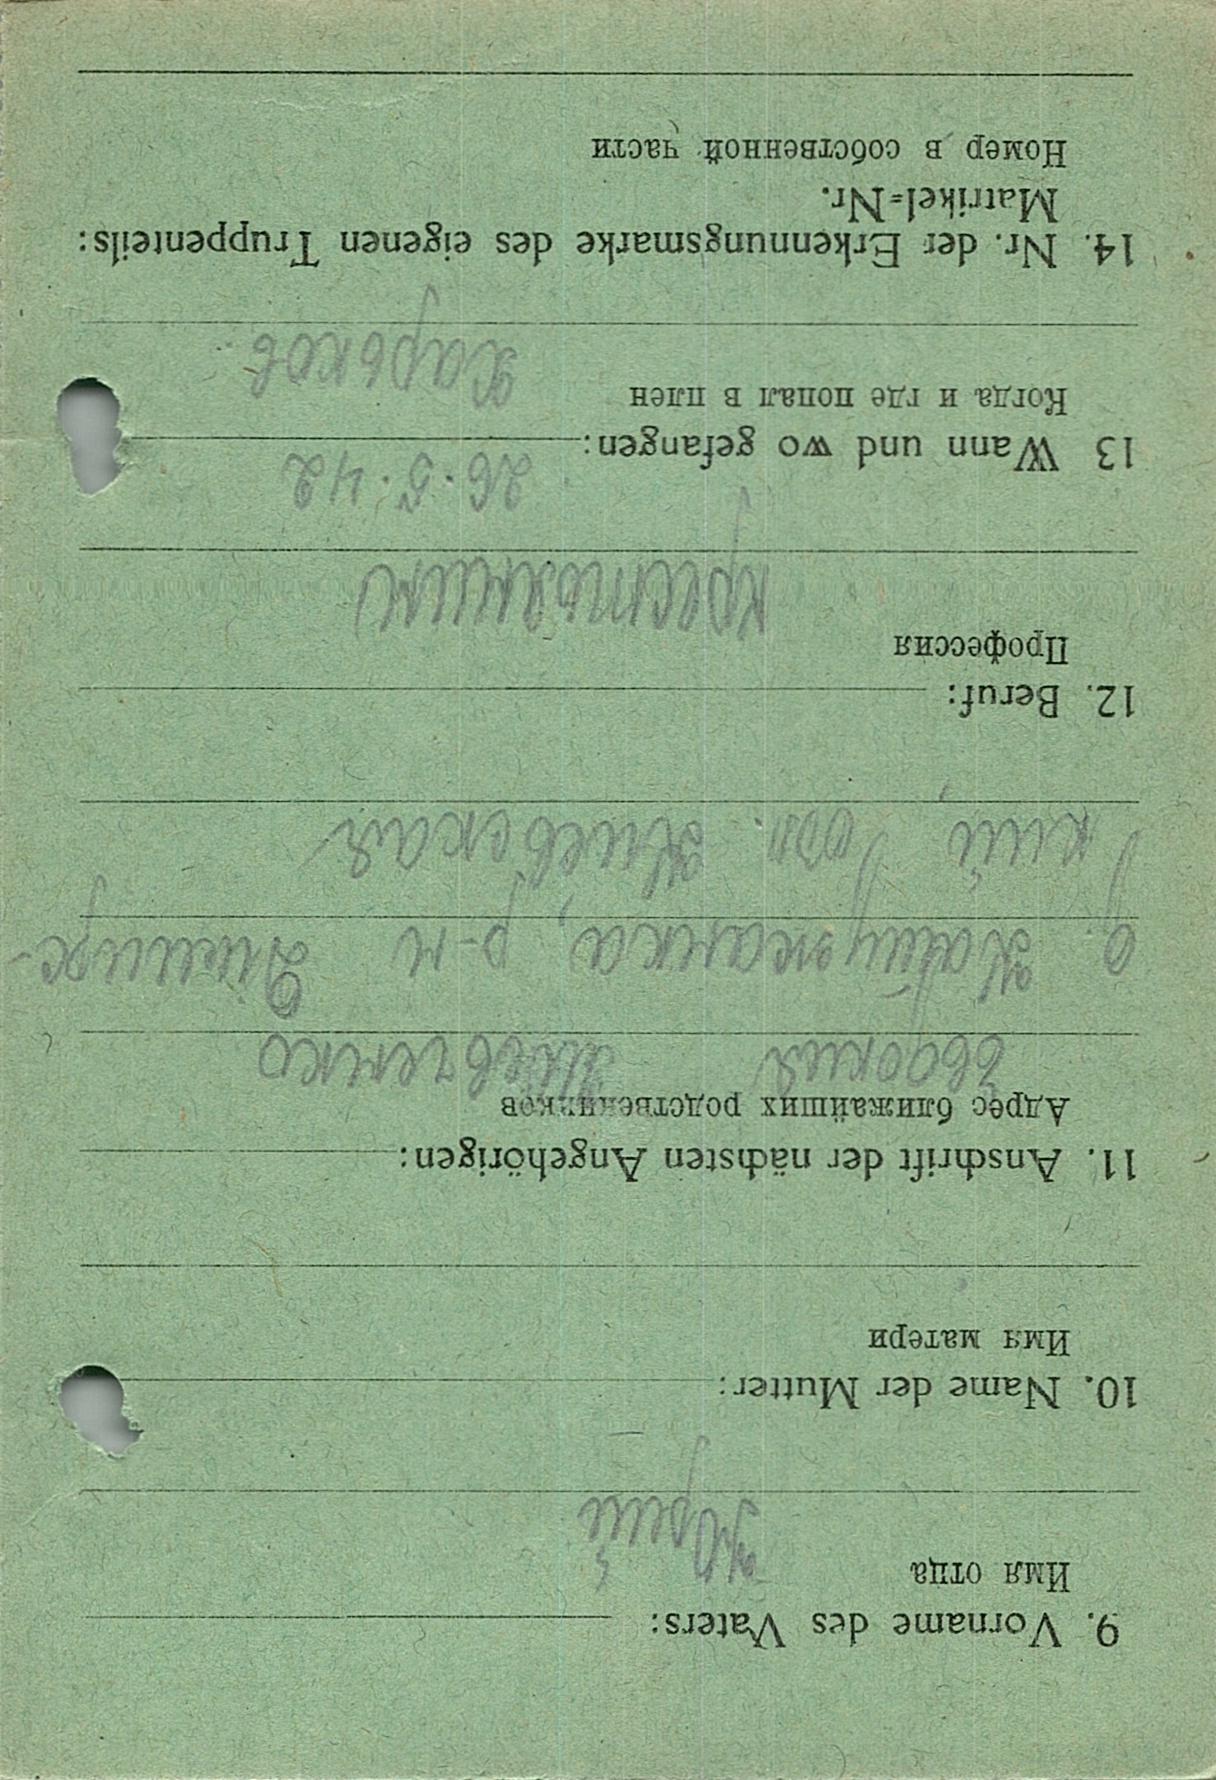 9. Vorname des Vaters:
Имя отца
Юрий
10. Name der Mutter:
Имя матери
11. Anschrift der nächsten Angehörigen:
Адрес ближайших родственников
Евдокия Шевченко
с. Катюжанка, р-н Димирс-
кий, обл. Киевская
12. Beruf:
Профессия
крестьянин
13 Wann und wo gefangen: 26.5.42
Когда и где попал в плен
Харьков
14. Nr. der Erkennungsmarke des eigenen Truppenteils:
Matrikel=Nr.
Номер в собственной части